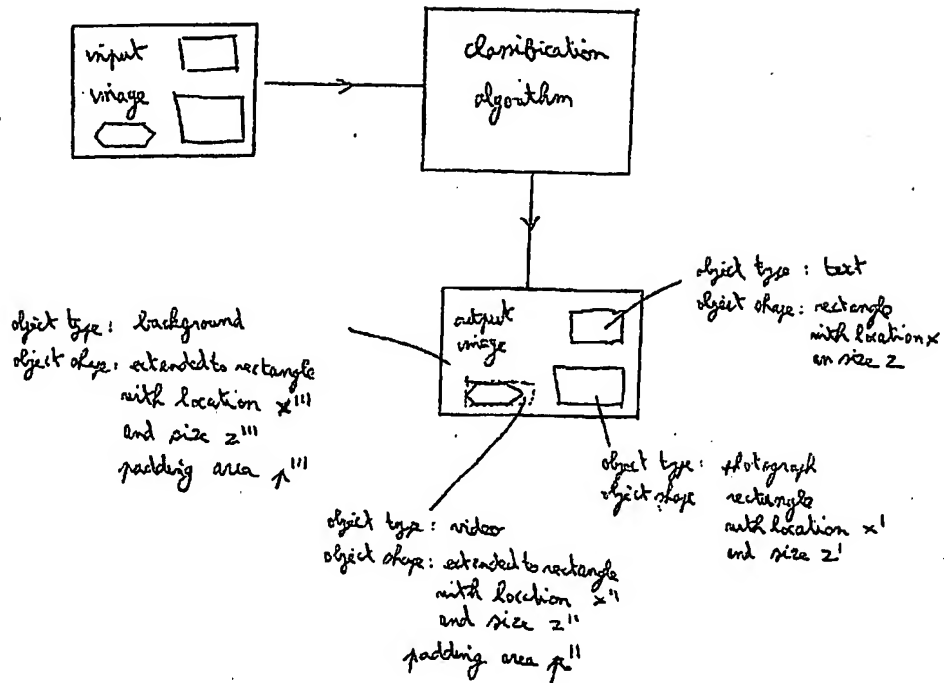 input
image
classification
algorithm
output
image
object type: text
object shape: rectangle
with location x
an size z
object type: background
object shape: extended to rectangle
with location x'''
and size z'''
padding area p'''
object type: photograph
object shape rectangle
with location x'
and size z'
object type: video
object shape: extended to rectangle
with location x''
and size z''
padding area p''